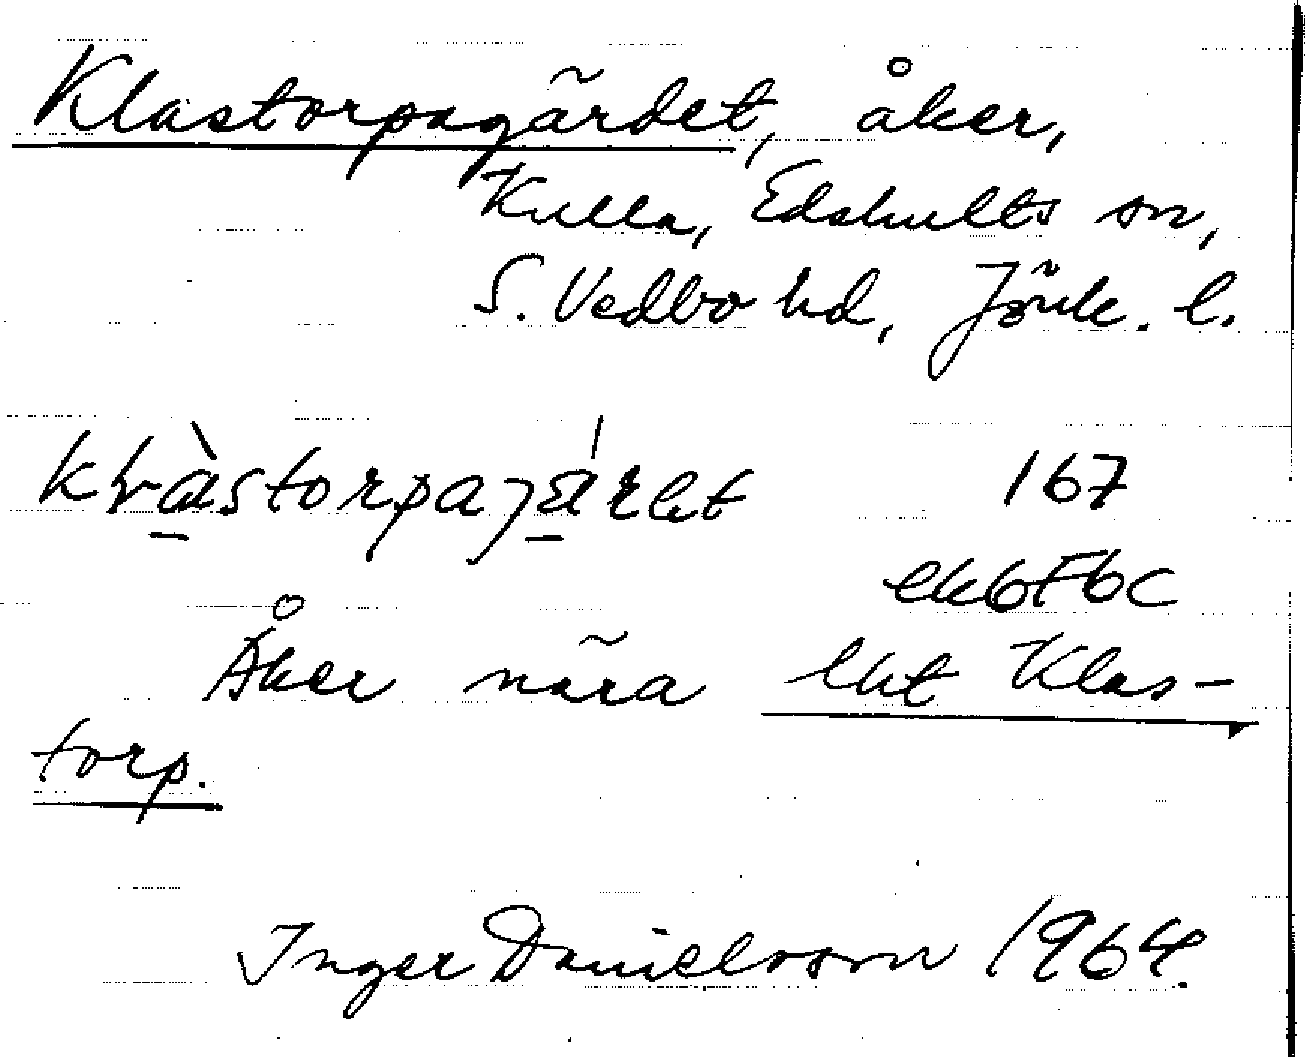 Klastorpagärdet, åker,
Kulla, Edshults sn,
S. Vedbo hd, Jönk. l.
167
ek6F6c
Åker nära lht Klas-
torp.
Inger Danielsson 1964.